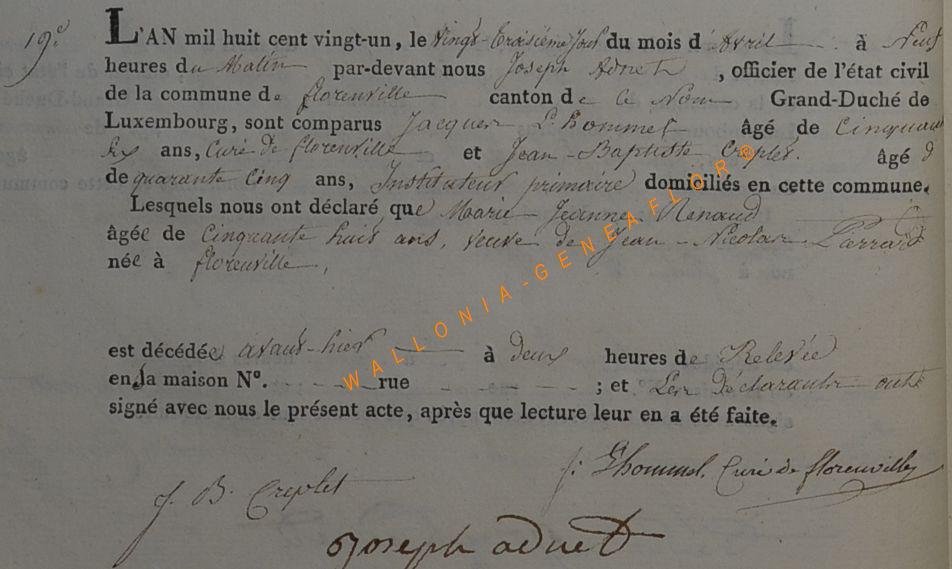 19.e
L'AN mil huit cent vingt-un, le vingt-troisième jour du mois d'Avril à Neuf
heures du Matin par-devant nous Joseph Adnet, officier de l'état civil
de la commune de florenville canton de ce Nom Grand-Duché de
Luxembourg, sont comparus Jacques L'hommel âgé de Cinquante
six ans, Curé de florenville et Jean-Baptiste Creplet. âgé d
de quarante Cinq ans, Instituteur primaire domiciliés en cette commune.
Lesquels nous ont déclaré que Marie-Jeanne Renaud
âgée de Cinquante huit ans, veuve de Jean-Nicolas
née à florenville,
est décédée avant-hier à deux heures de Relevée
en la maison N°. rue ; et Les Déclarants ont
signé avec nous le présent acte, après que lecture leur en a été faite.
J. Lhommel, Curé de florenville
J. B. Creplet
Joseph adnet
WALLONIA-GENEAFLOR®